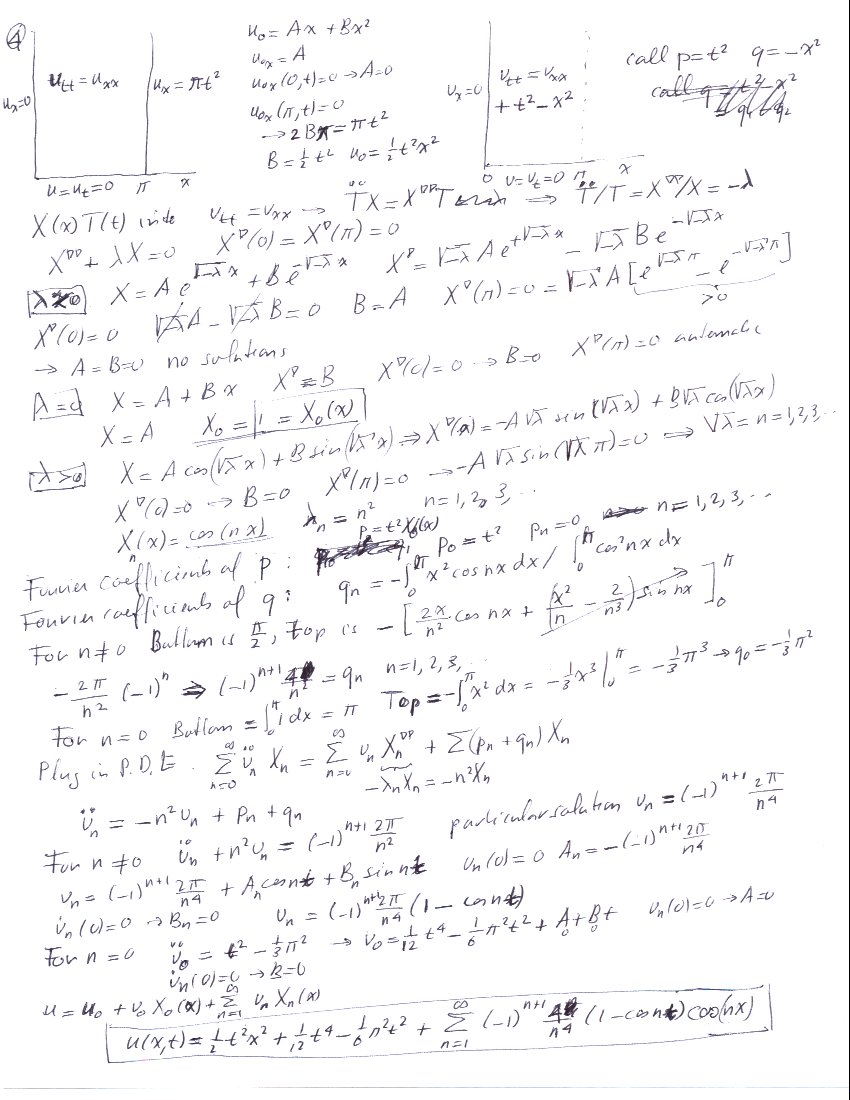 ④
u_tt = u_xx
u_x = πt²
u_x=0
u=u_t=0 π x
u₀ = Ax + Bx²
u₀ₓ = A
u₀ₓ(0,t)=0 → A=0
u₀ₓ(π,t)=0
→ 2Bπ = πt²
B = ½t² u₀ = ½t²x²
v_x=0
v_tt = v_xx
+ t² − x²
0 v=v_t=0 π x
call p=t² q=−x²
X(x)T(t) into v_tt = v_xx → T̈X = X''T ⟹ T̈/T = X''/X = −λ
X'' + λX = 0 X'(0) = X'(π) = 0
λ<0 X = A e^{√−λ x} + B e^{−√−λ x} X' = √−λ A e^{+√−λ x} − √−λ B e^{−√−λ x}
X'(0) = 0 √−λ A − √−λ B = 0 B = A X'(π) = 0 = √−λ A [e^{√−λ π} − e^{−√−λ π}]
>0
→ A=B=0 no solutions
λ=0 X = A + Bx X' = B X'(0) = 0 → B=0 X'(π) = 0 automatic
X = A X₀ = 1 = X₀(x)
λ>0 X = A cos(√λ x) + B sin(√λ x) ⇒ X'(x) = −A√λ sin(√λ x) + B√λ cos(√λ x)
X'(0)=0 → B=0 X'(π)=0 → −A√λ sin(√λ π)=0 ⟹ √λ = n = 1,2,3,..
X_n(x) = cos(nx) λ_n = n² n=1,2,3,..
Fourier coefficients of p: p=t²X₀(x) p₀ = t² p_n = 0 n=1,2,3,..
Fourier coefficients of q: q_n = −∫₀^π x² cos nx dx / ∫₀^π cos² nx dx
For n≠0 Bottom is π/2, top is −[2x/n² cos nx + (x²/n − 2/n³) sin nx]₀^π
−2π/n² (−1)^n ⇒ (−1)^{n+1} 4/n² = q_n n=1,2,3,..
For n=0 Bottom = ∫₀^π 1 dx = π Top = −∫₀^π x² dx = −⅓x³|₀^π = −⅓π³ → q₀ = −⅓π²
Plug in P.D.E. Σ_{n=0}^∞ v̈_n X_n = Σ_{n=0}^∞ v_n X_n'' + Σ(p_n + q_n) X_n
−λ_n X_n = −n² X_n
v̈_n = −n² v_n + p_n + q_n
For n≠0 v̈_n + n² v_n = (−1)^{n+1} 2π/n² particular solution v_n = (−1)^{n+1} 2π/n⁴
v_n = (−1)^{n+1} 2π/n⁴ + A_n cos nt + B_n sin nt v_n(0)=0 A_n = −(−1)^{n+1} 2π/n⁴
v̇_n(0)=0 → B_n=0 v_n = (−1)^{n+1} 2π/n⁴ (1 − cos nt)
For n=0 v̈₀ = t² − ⅓π² → v₀ = 1/12 t⁴ − 1/6 π²t² + A₀ + B₀t v_n(0)=0 → A=0
v̇_n(0)=0 → B=0
u = u₀ + v₀X₀(x) + Σ_{n=1}^∞ v_n X_n(x)
u(x,t) = ½t²x² + 1/12 t⁴ − 1/6 π²t² + Σ_{n=1}^∞ (−1)^{n+1} 4/n⁴ (1−cos nt) cos(nx)